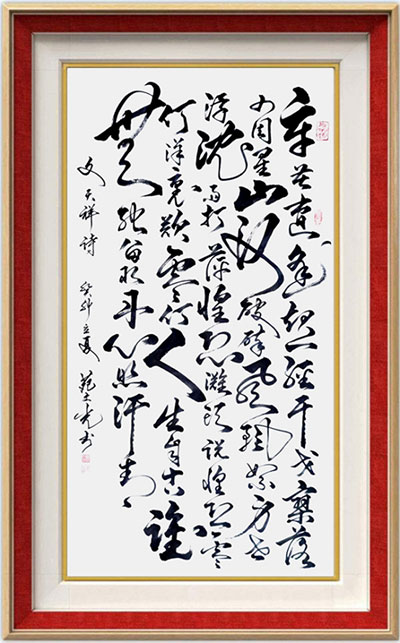 辛苦遭逢起一經干戈寥落
四周星山河破碎風飄絮身世
浮沈雨打萍惶恐灘頭說惶恐零
丁洋裏歎零丁人生自古誰
無死留取丹心照汗青
文天祥诗 癸卯立夏 范书